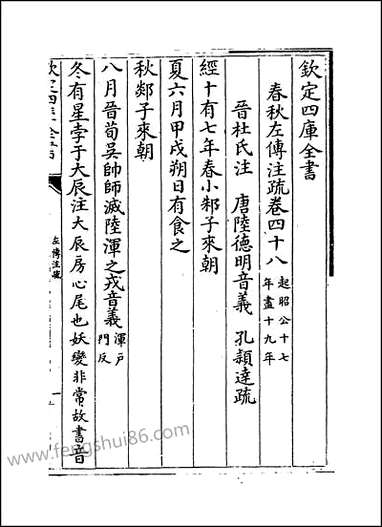 欽定四庫全書
春秋左傳注疏卷四十八起昭公十七年盡十九年
晉杜氏注 唐陸德明音義 孔穎達疏
經十有七年春小邾子來朝
夏六月甲戌朔日有食之
秋郯子來朝
八月晉荀吳帥師滅陸渾之戎音義渾戶門反
冬有星孛于大辰注大辰房心尾也妖變非常故書音
欽定四庫全書
左傳注疏
一
www.fengshui86.com